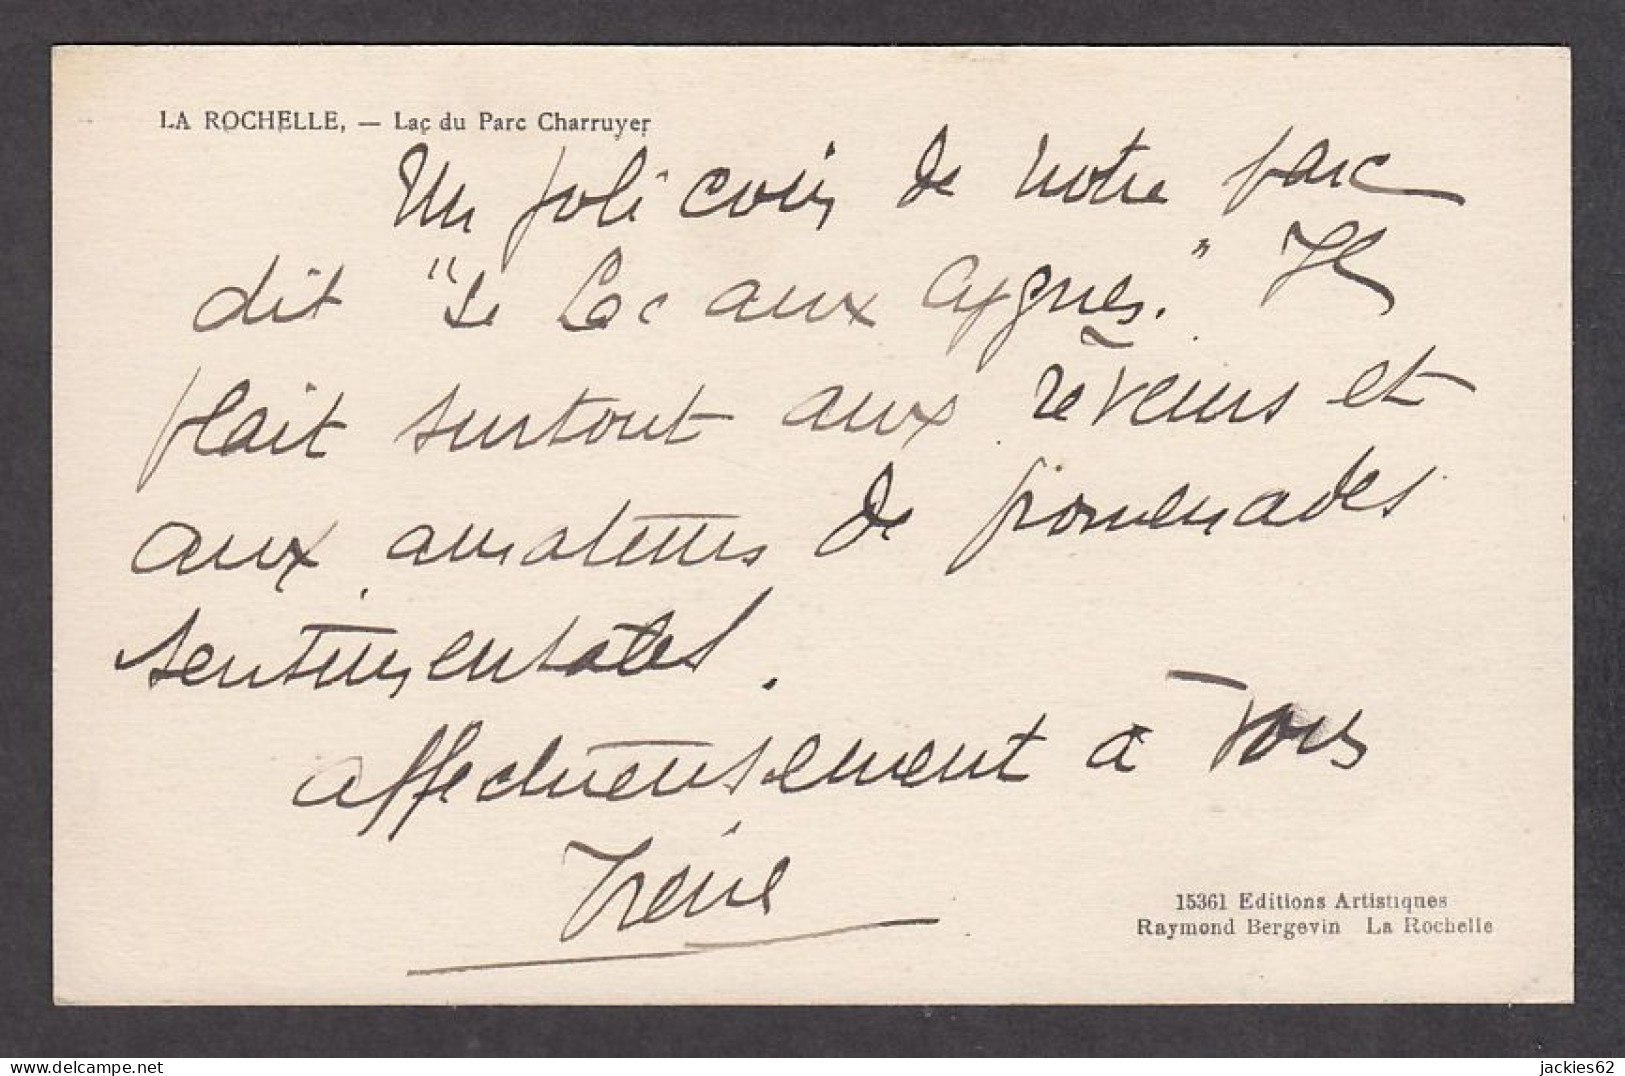 LA ROCHELLE, — Lac du Parc Charruyer
Un joli coin de notre parc
dit "Le Lac aux Cygnes." Il
plait surtout aux rêveurs et
aux amateurs de promenades
sentimentales.
affectueusement à vous
Irène
15361 Editions Artistiques
Raymond Bergevin La Rochelle
delcampe.net
jackies62